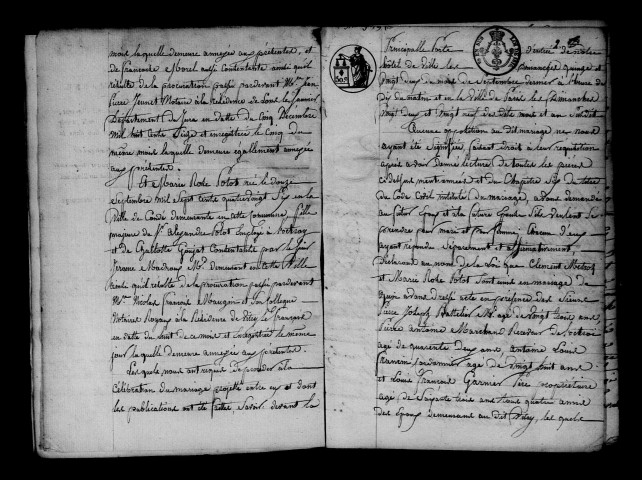 mois laquelle demeure annexée au présentes, et
de françoise Morel aussi Contentante ainsi quil
résulte de la procuration passée pardevant Me. Jean
Pierre Jeunet Notaire à la Résidence de Lons le Saunier
Département du Jura en date du Cinq Décembre
mil huit cents Seize et enregistrée le Cinq du
même mois laquelle demeure également annexée
aux présentes.
Et Marie Rose Polot née le douze
Septembre mil Sept cents quatre vingt Six en la
Ville de Condé demeurante en cette Commune, fille
majeure de Sr. Alexandre Polot Employé à l'octroy
et de Charlotte Goujat Contentante par le Sieur
Jerome demeurant en cette Ville
quil résulte de la procuration passée pardevant
Me. Nicolas françois Maugin et Son Collegue
Notaire Royaux à la Résidence de Vitry le françois
en datte du huit de ce mois et Enregistrée le même
jour laquelle demeure annexée au présentes.
Lesquels nous ont requis de procéder à la
Célébration du mariage projetté entre eux et dont
les publications ont été faites Savoir: devant la
Principalle Porte d'entrée de notre
hôtel de Ville les Dimanches quinze et
Vingt deux du mois de Septembre dernier à l'heure de
dix du matin et en la Ville de Paris les Dimanches
Vingt deux et Vingt neuf du dite mois et an à Midi
Aucune opposition au dit mariage ne nous
ayant été Signifiée, faisant droit à leur requisition
après avoir donné lecture de toutes les pièces
cidessus mentionnées et du Chapitre Six du titre
du Code Civil intitulé du mariage, avons demandé
au futur Epoux et à la future Epouse S'ils veulent Se
prendre pour mari et pour femme; Chacun d'eux
ayant répondu Séparement et affirmativement
déclarons au nom de la Loi que Clément
et Marie Rose Polot Sont unis en mariage de
quoi avons dressé acte en présence des Sieurs
Pierre Joseph Battelier agé de Vingt trois ans
Pierre Antoine Marchand Receveur de l'octroi
agé de quarente deux ans, antoine Louis
agé de Vingt huit ans
et Louis françois Garnier Père propriétaire
agé de Soixante trois ans tous quatre amis
des Epoux demeurant au dit Vitry, lesquels